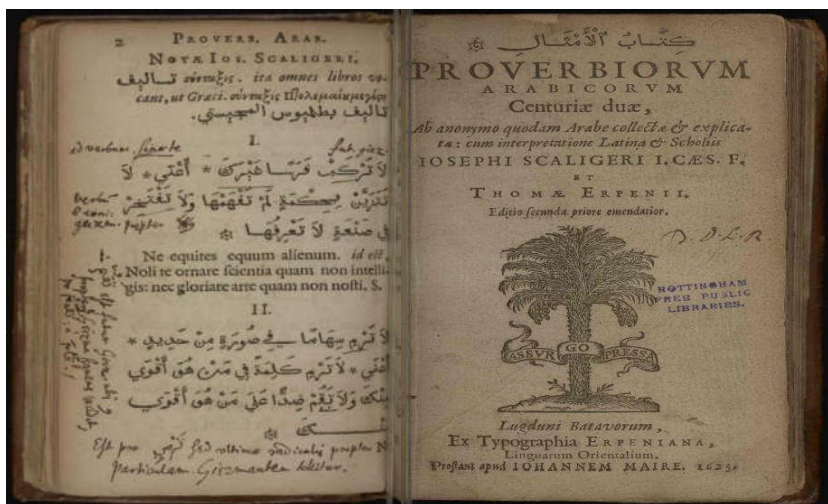 2 PROVERB. ARAB.
NOTÆ IOS. SCALIGERI.
تاليف σύνταξις. ita omnes libros vo-
cant, ut Græci. σύνταξις
تاليف بطلميوس المجيستي.
I.
لَا تَرْكَبْ فَرَسًا غَيْرَكَ * أَعْنِي * لَا
تَتَزَيَّنْ بِحِكْمَةٍ لَمْ تَفْهَمْهَا وَلَا تَفْتَخِرْ
فِي صَنْعَةٍ لَا تَعْرِفُهَا
Ne equites equum alienum. id est,
Noli te ornare scientia quam non intelli-
gis: nec gloriare arte quam non nosti. S.
II.
لَا تَرْمِ سِهَامًا فِي صُورَةٍ مِنْ حَدِيدٍ *
أَعْنِي * لَا تَرْمِ كَلِمَةً فِي مَنْ هُوَ أَقْوَي
مِنْكَ وَلَا تَقُمْ ضِدًّا عَلَي مَنْ هُوَ أَقْوَي
مِنْكَ
Est pro sed ultima radicalis propter
particulam Giezmantem tollitur.
كِتَابُ الْأَمْثَالِ
PROVERBIORVM
ARABICORVM
Centuriæ duæ,
Ab anonymo quodam Arabe collectæ & explica-
tæ: cum interpretatione Latina & Scholiis
IOSEPHI SCALIGERI I. CÆS. F.
ET
THOMÆ ERPENII.
Editio secunda priore emendatior.
NOTTINGHAM
FREE PUBLIC
LIBRARIES.
ASSVR GO PRESSA
Lugduni Batavorum,
Ex Typographia ERPENIANA,
Linguarum Orientalium.
Prostant apud IOHANNEM MAIRE. 1623.